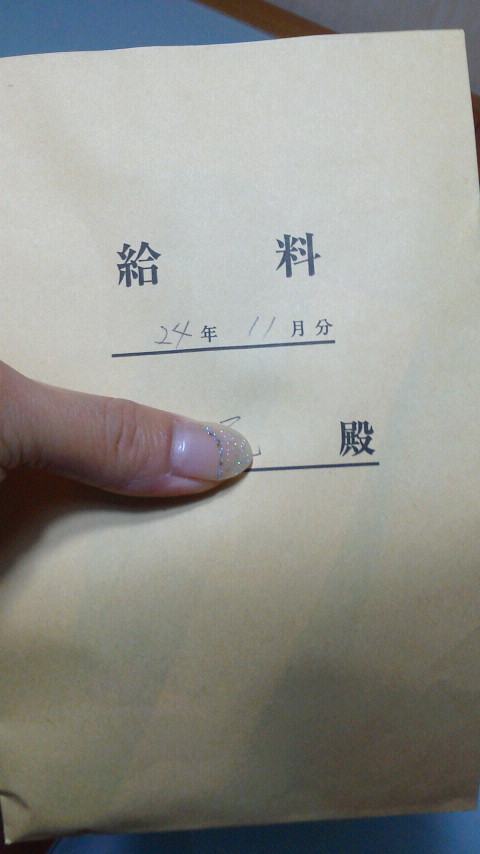 給料
24年 11月分
殿